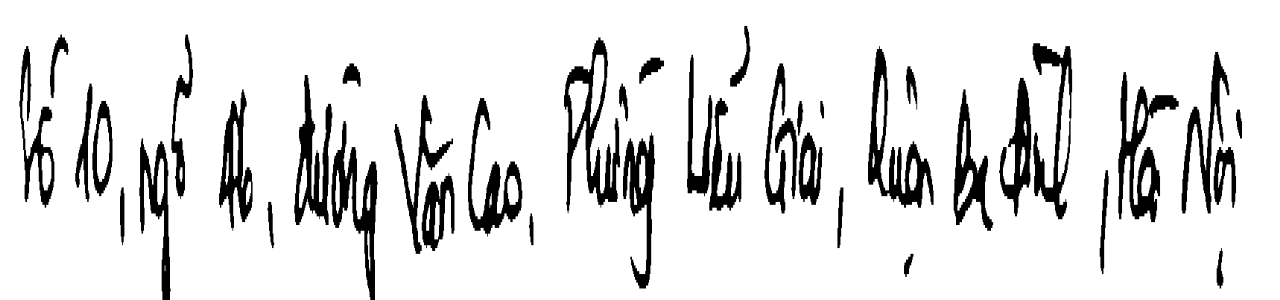 Số 10, ngõ 46, đường Văn Cao, Phường Liễu Giai, Quận Ba Đình, Hà Nội